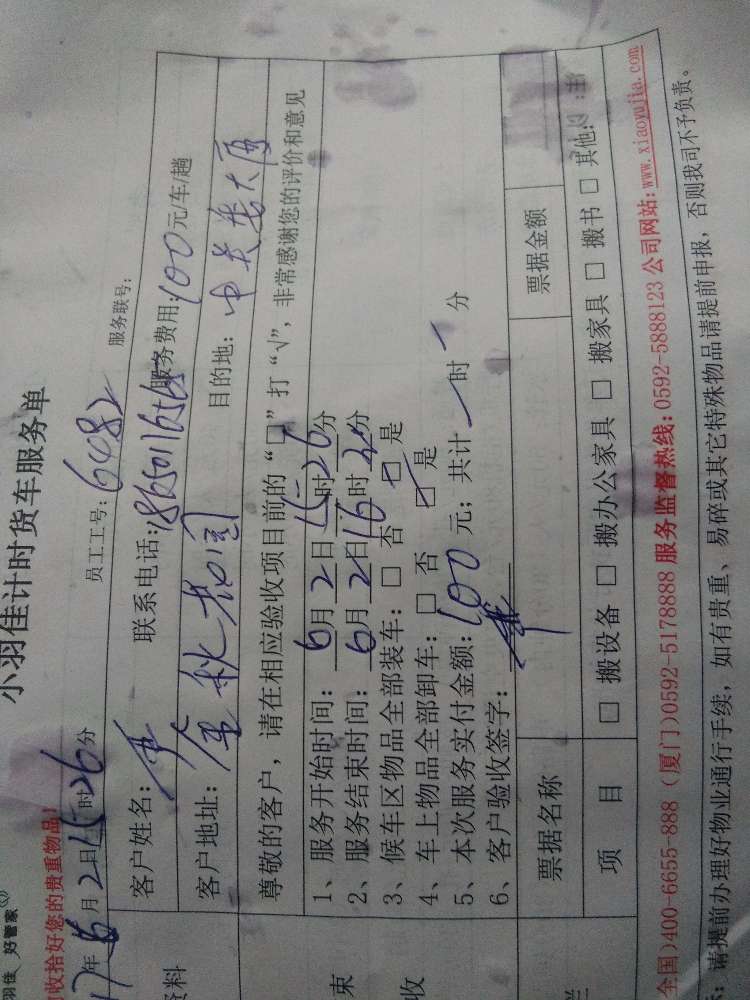 羽佳 好管家
小羽佳计时货车服务单
收拾好您的贵重物品!
17年6月2日15时26分 员工工号:6482 服务联号:
客户姓名: 联系电话: 服务费用:100元/车/趟
客户地址:金秋花园 目的地:中关村大厦
尊敬的客户，请在相应验收项目前的“□”打“√”，非常感谢您的评价和意见
1、服务开始时间:6月2日15时26分
2、服务结束时间:6月2日16时20分
3、候车区物品全部装车:□ 否 ☑ 是
4、车上物品全部卸车:□ 否 ☑ 是
5、本次服务实付金额:100元; 共计 时 分
6、客户验收签字:
资料
束
收
票据名称 票据金额
项 目 □ 搬设备 □ 搬办公家具 □ 搬家具 □ 搬书 □ 其他:
全国)400-6655-888 (厦门)0592-5178888 服务监督热线:0592-5888123 公司网站:www.xiaoyujia.com
:请提前办理好物业通行手续，如有贵重、易碎或其它特殊物品请提前申报，否则我司不予负责。